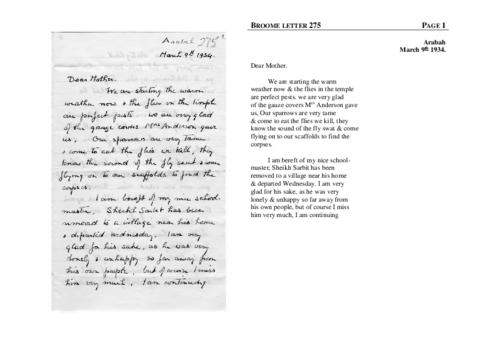 Arabah 275
March 9th 1934.
Dear Mother.
We are starting the warm
weather now & the flies in the temple
are perfect pests. we are very glad
of the gauze covers Mrs Anderson gave
us. Our sparrows are very tame
& come to eat the flies we kill, they
know the sound of the fly swat & come
flying on to our scaffolds to find the
corpses.
I am bereft of my nice school-
master, Sheikh Sarbit has been
removed to a village near his home
& departed Wednesday. I am very
glad for his sake, as he was very
lonely & unhappy so far away from
his own people, but of course I miss
him very much, I am continuing
BROOME LETTER 275 PAGE 1
Arabah
March 9th 1934.
Dear Mother.
We are starting the warm
weather now & the flies in the temple
are perfect pests. we are very glad
of the gauze covers Mrs Anderson gave
us, Our sparrows are very tame
& come to eat the flies we kill, they
know the sound of the fly swat & come
flying on to our scaffolds to find the
corpses.
I am bereft of my nice school-
master, Sheikh Sarbit has been
removed to a village near his home
& departed Wednesday. I am very
glad for his sake, as he was very
lonely & unhappy so far away from
his own people, but of course I miss
him very much, I am continuing